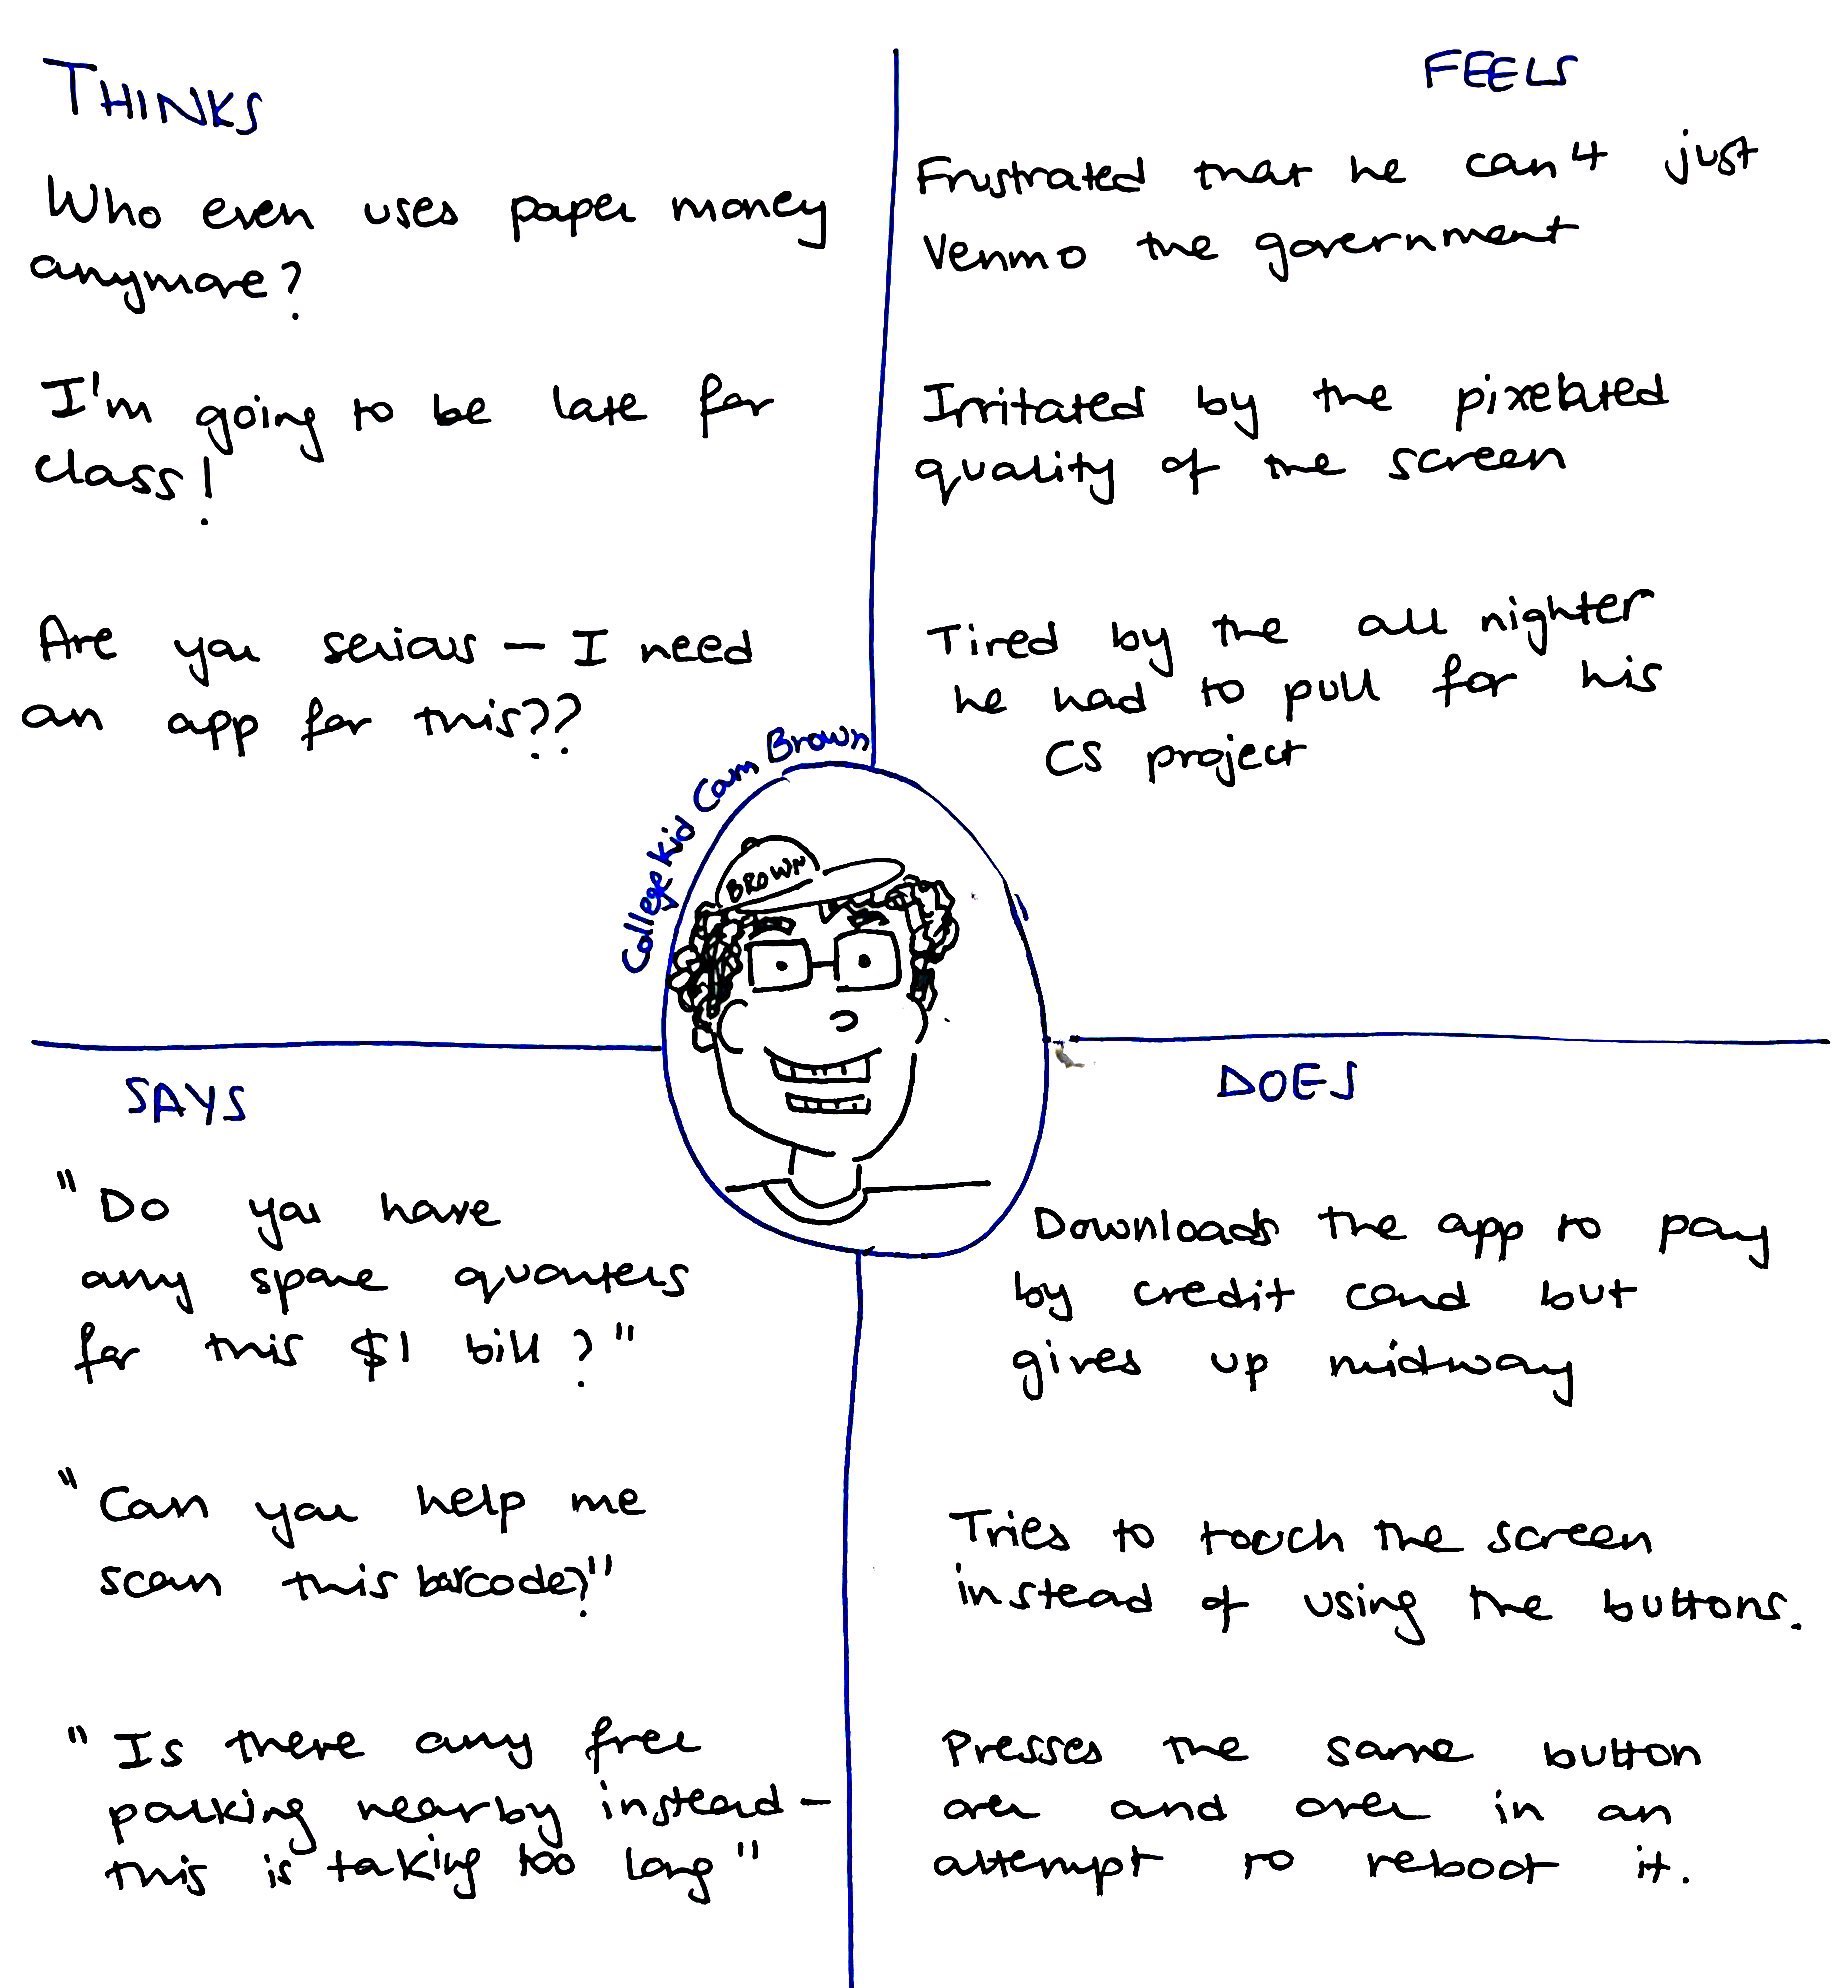 THINKS
Who even uses paper money
anymore?
I'm going to be late for
class!
Are you serious – I need
an app for this??
FEELS
Frustrated that he can't just
Venmo the government
Irritated by the pixelated
quality of the screen
Tired by the all nighter
he had to pull for his
CS project
College Kid Cam Brown
BROWN
SAYS
"Do you have
any spare quarters
for this $1 bill?"
"Can you help me
scan this barcode?"
"Is there any free
parking nearby instead –
this is taking too long"
DOES
Downloads the app to pay
by credit card but
gives up midway
Tries to touch the screen
instead of using the buttons.
Presses the same button
over and over in an
attempt to reboot it.